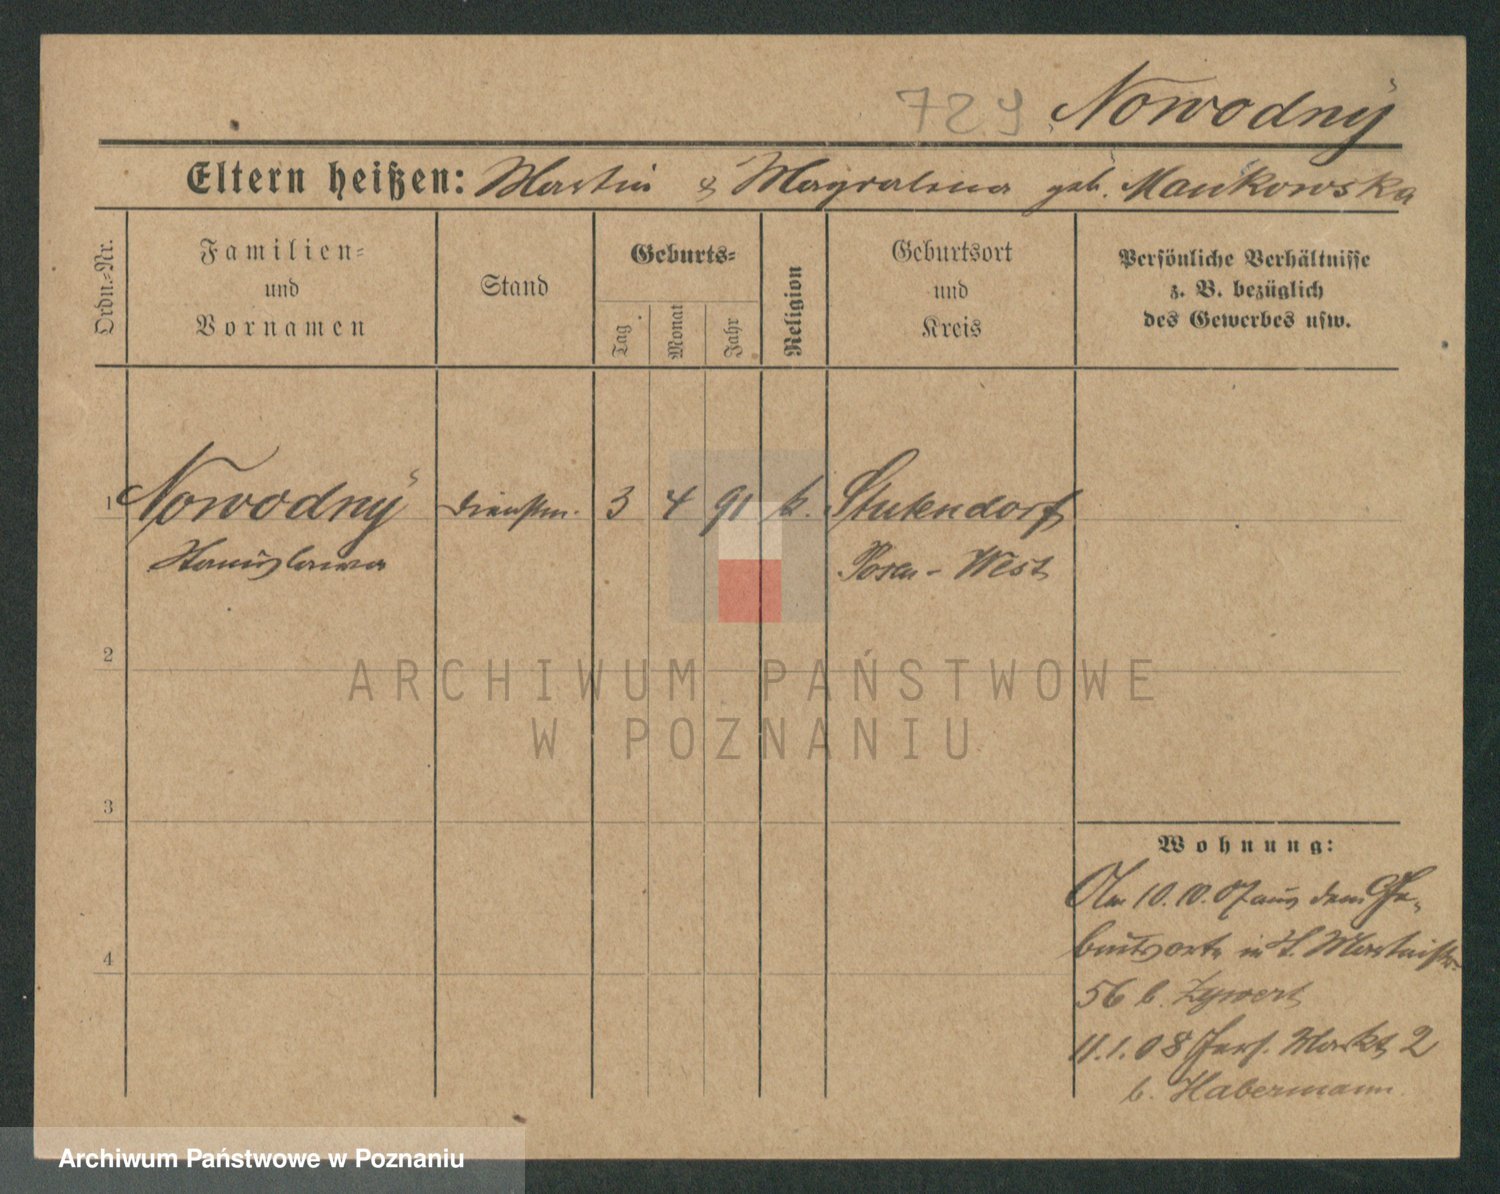 729 Nowodny
Eltern heißen: Martin & Magdalena geb. Mankowska
Ordn.-Nr.
Familien-
und
Vornamen
Stand
Geburts-
Tag
Monat
Jahr
Religion
Geburtsort
und
Kreis
Persönliche Verhältnisse
z. B. bezüglich
des Gewerbes usw.
1 Nowodny Dienstm. 3 4 91 k. Stukendorf
Stanislawa Posen-West
2
3
4
ARCHIWUM PAŃSTWOWE
W POZNANIU
Wohnung:
Am 10.10.07 aus dem Ge-
burtsorte in St. Martinstr.
56 b. Zywert
11.1.08 Markt 2
b. Habermann.
Archiwum Państwowe w Poznaniu